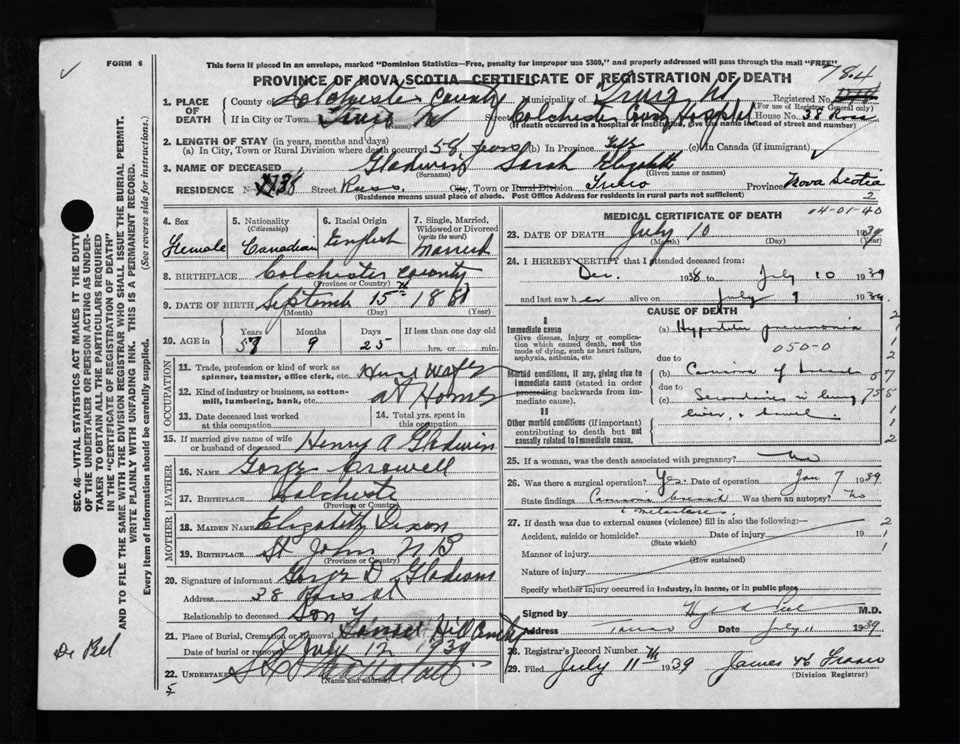 FORM 6
This form if placed in an envelope, marked "Dominion Statistics—Free, penalty for improper use $300," and properly addressed will pass through the mail "FREE"
PROVINCE OF NOVA SCOTIA—CERTIFICATE OF REGISTRATION OF DEATH
784
Registered No.
(For use of Registrar General only)
1. PLACE OF DEATH
County of Colchester County Municipality of
If in City or Town Street Colchester County Hospital House No. 38 Ross
(Name) (If death occurred in a hospital or institution, give the name instead of street and number)
2. LENGTH OF STAY (in years, months and days)
(a) In City, Town or Rural Division where death occurred 58 years (b) In Province life (c) In Canada (if immigrant)
3. NAME OF DECEASED Gladwin Sarah Elizabeth
(Surname) (Given or names)
RESIDENCE No. 38 Street Ross City, Town or Rural Division Truro Province Nova Scotia
(Residence means usual place of abode. Post Office Address for residents in rural parts not sufficient) 2
4. Sex Female
5. Nationality (Citizenship) Canadian
6. Racial Origin English
7. Single, Married, Widowed or Divorced (write the word) Married
8. BIRTHPLACE Colchester County
(Province or Country)
9. DATE OF BIRTH September 15th
(Month) (Day) (Year)
10. AGE in Years 58 Months 9 Days 25 If less than one day old hrs. or min.
OCCUPATION
11. Trade, profession or kind of work as spinner, teamster, office clerk, etc. House Wife
12. Kind of industry or business, as cotton-mill, lumbering, bank, etc. at Home
13. Date deceased last worked at this occupation
14. Total yrs. spent in this occupation
15. If married give name of wife or husband of deceased Henry A Gladwin
FATHER
16. NAME George Crowell
17. BIRTHPLACE Colchester
(Province or Country)
MOTHER
18. MAIDEN NAME Elizabeth Dixon
19. BIRTHPLACE St John N B
(Province or Country)
20. Signature of informant George D Gladwin
Address 38 Ross st
Relationship to deceased Son
21. Place of Burial, Cremation or Removal Hill Cemetery
Date of burial or removal July 12 1939
22. UNDERTAKER
(Name and address)
5
MEDICAL CERTIFICATE OF DEATH
04-01-40
23. DATE OF DEATH July 10 1939
(Month) (Day) (Year)
24. I HEREBY CERTIFY that I attended deceased from
Dec. 1938 to July 10 1939
and last saw h er alive on July 9 1939
CAUSE OF DEATH
I
Immediate cause
Give disease, injury or complication which caused death, not the mode of dying, such as heart failure, asphyxia, asthenia, etc.
(a) Hypostatic pneumonia
050-0
due to
Morbid conditions, if any, giving rise to immediate cause (stated in order proceeding backwards from immediate cause).
(b) Carcinoma of breast
due to
(c) Secondaries in lung
liver, & bowel
II
Other morbid conditions (if important) contributing to death but not causally related to immediate cause.
25. If a woman, was the death associated with pregnancy? No
26. Was there a surgical operation? Yes Date of operation Jan 7 1939
State findings Carcinoma breast Was there an autopsy? No
metastases.
27. If death was due to external causes (violence) fill in also the following:—
Accident, suicide or homicide? Date of injury 19
(State which)
Manner of injury
(How sustained)
Nature of injury
Specify whether injury occurred in industry, in home, or in public place
Signed by M.D.
Address Truro Date July 11 1939
28. Registrar's Record Number
29. Filed July 11th 1939 James H Fraser
(Division Registrar)
SEC. 46—VITAL STATISTICS ACT MAKES IT THE DUTY OF THE UNDERTAKER OR PERSON ACTING AS UNDERTAKER TO OBTAIN ALL THE PARTICULARS REQUIRED IN THE "CERTIFICATE OF REGISTRATION OF DEATH" AND TO FILE THE SAME WITH THE DIVISION REGISTRAR WHO SHALL ISSUE THE BURIAL PERMIT.
WRITE PLAINLY WITH UNFADING INK. THIS IS A PERMANENT RECORD.
Every item of information should be carefully supplied. (See reverse side for instructions.)